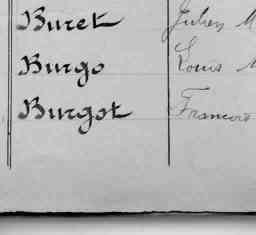 Buret Julien M
Burgo Louis M
Burgot Francois